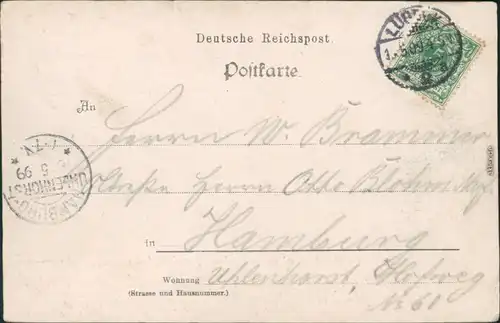 Deutsche Reichspost.
Postkarte.
LÜBECK
An
Herrn W. Brammer
Herrn Otto
in Hamburg
Wohnung Uhlenhorst, Hofweg
(Strasse und Hausnummer.)
No 61
HAMBURG
UHLENHORST
5
99
1-2N